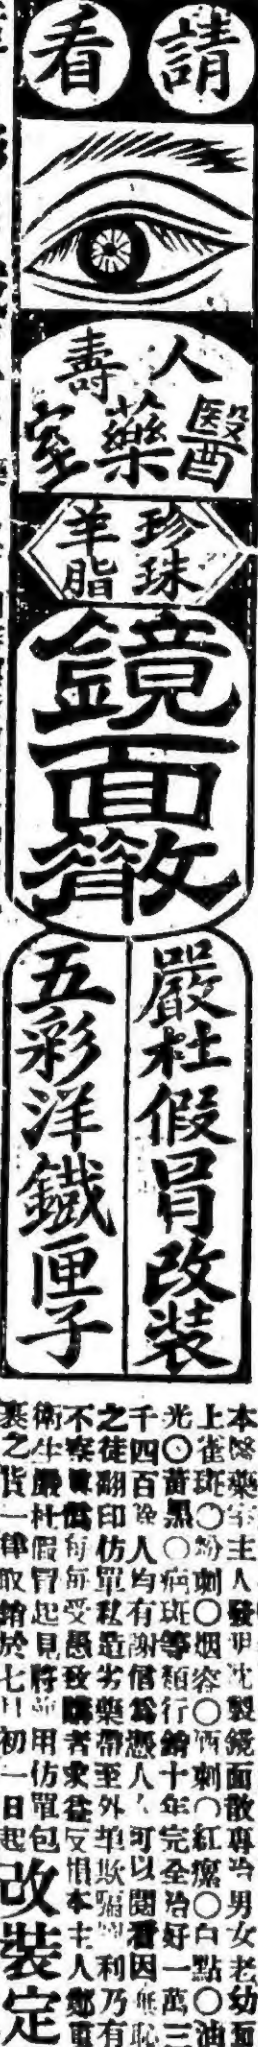 請看
人壽
醫藥室
珍珠
羊脂
鏡面散
嚴杜假冒改装
五彩洋鐵匣子
本醫藥室主人發明沈製鏡面散專治男女老幼面
上雀斑〇粉刺〇烟容〇酒刺〇紅瘰〇白點〇油
光〇黃黑〇痕斑等類行銷十年完全治好一萬三
千四百 人均有謝信爲憑人人可以閱看因無恥
之徒翻印仿單私造劣藥帶至外埠欺騙 利乃有
不察眞僞每每受愚致購者求益反損本主人鄭重
衛生嚴杜假冒起見將前用仿單包
裹之貨一律取銷於七月初一日起
改裝定